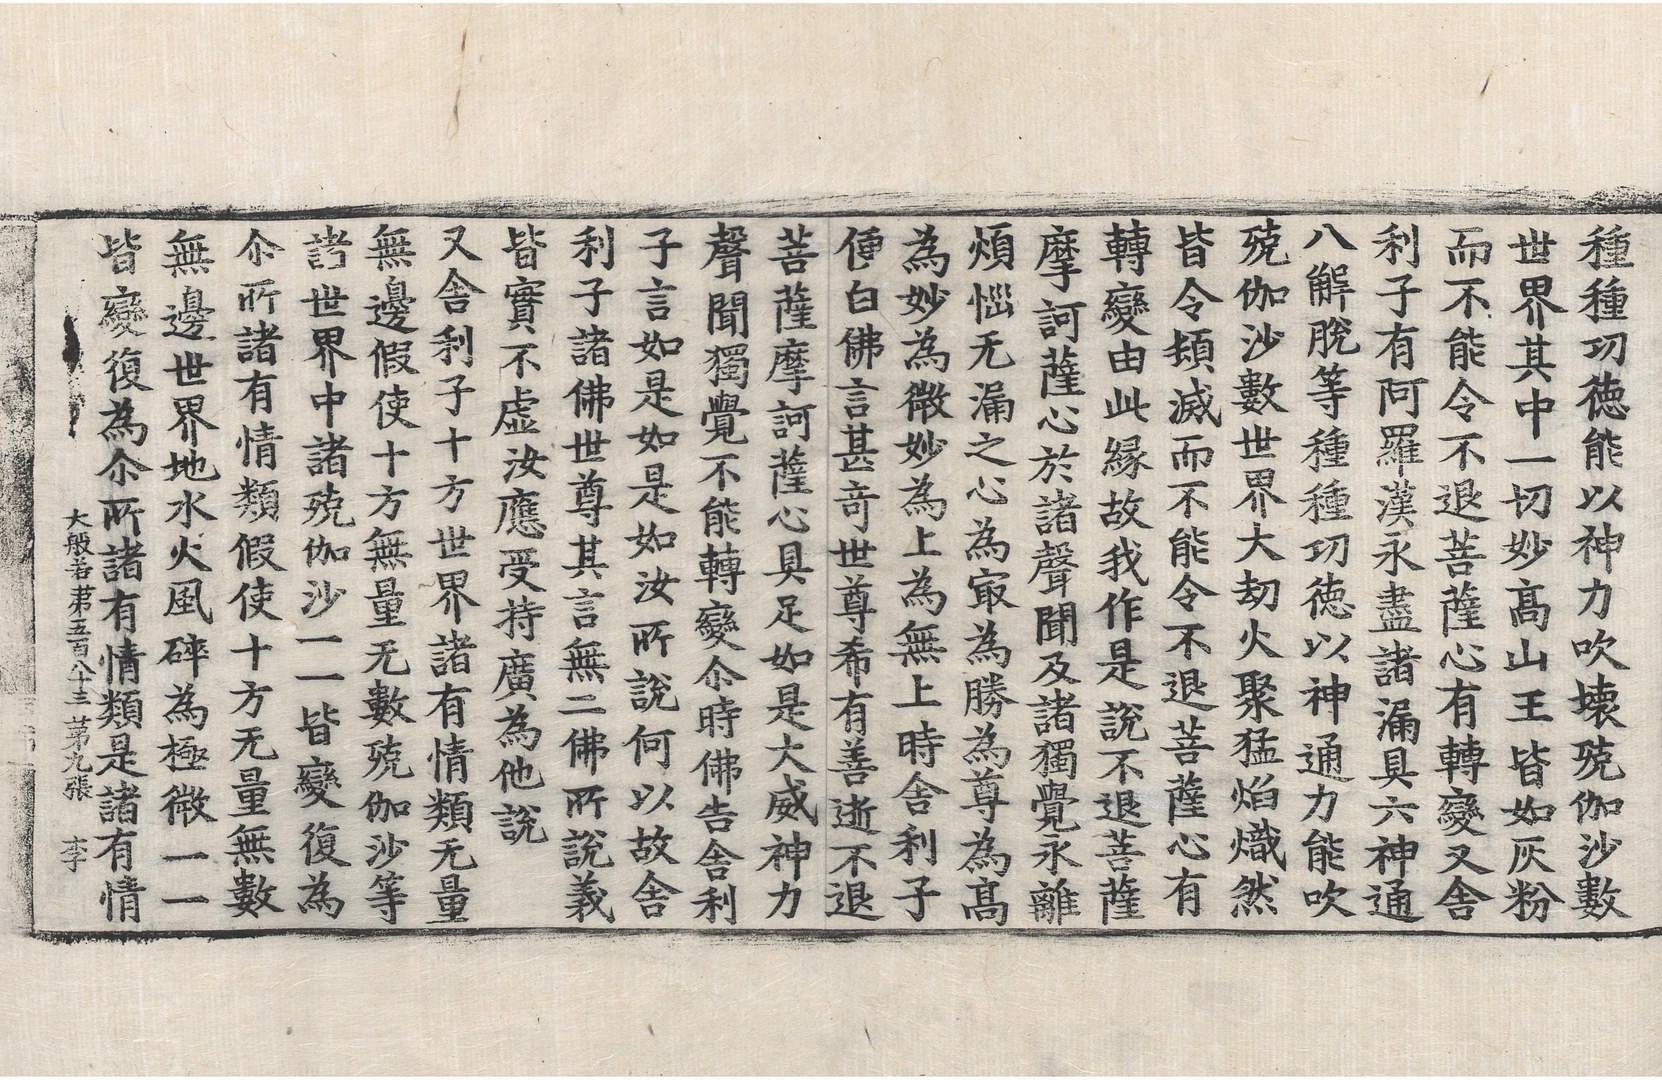 種種功德能以神力吹壊殑伽沙數
世界其中一切妙高山王皆如灰粉
而不能令不退菩薩心有轉變又舍
利子有阿羅漢永盡諸漏具六神通
八解脫等種種功德以神通力能吹
殑伽沙數世界大劫火聚猛焰熾然
皆令頓滅而不能令不退菩薩心有
轉變由此緣故我作是說不退菩薩
摩訶薩心於諸聲聞及諸獨覺永離
煩惱无漏之心為冣為勝為尊為髙
為妙為微妙為上為無上時舍利子
便白佛言甚竒世尊希有善逝不退
菩薩摩訶薩心具足如是大威神力
聲聞獨覺不能轉變尒時佛告舍利
子言如是如是如汝所說何以故舍
利子諸佛世尊其言無二佛所說義
皆實不虛汝應受持廣為他說
又舍利子十方世界諸有情類无量
無邊假使十方無量无數殑伽沙等
諸世界中諸殑伽沙一一皆變復為
尒所諸有情類假使十方无量無數
無邊世界地水火風碎為極微一一
皆變復為尒所諸有情類是諸有情
大般若第五百八十三 第九張 李